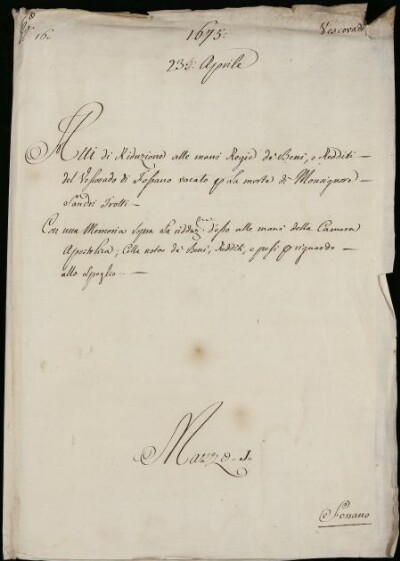 N.º 16.
1675.
Vescovadi
23: Aprile
Atti di Riduzione alle mani Regie de Beni, e Redditi
del Vescovado di Fossano vacato p la morte di Monsignore
Sandri Trotti
Con una Memoria sopra la riduz.ne d'esso alle mani della Camera
Apostolica; colla nota de Beni, Redditi, e pesi p riguardo
allo spoglio
Mazzo 1
Fossano